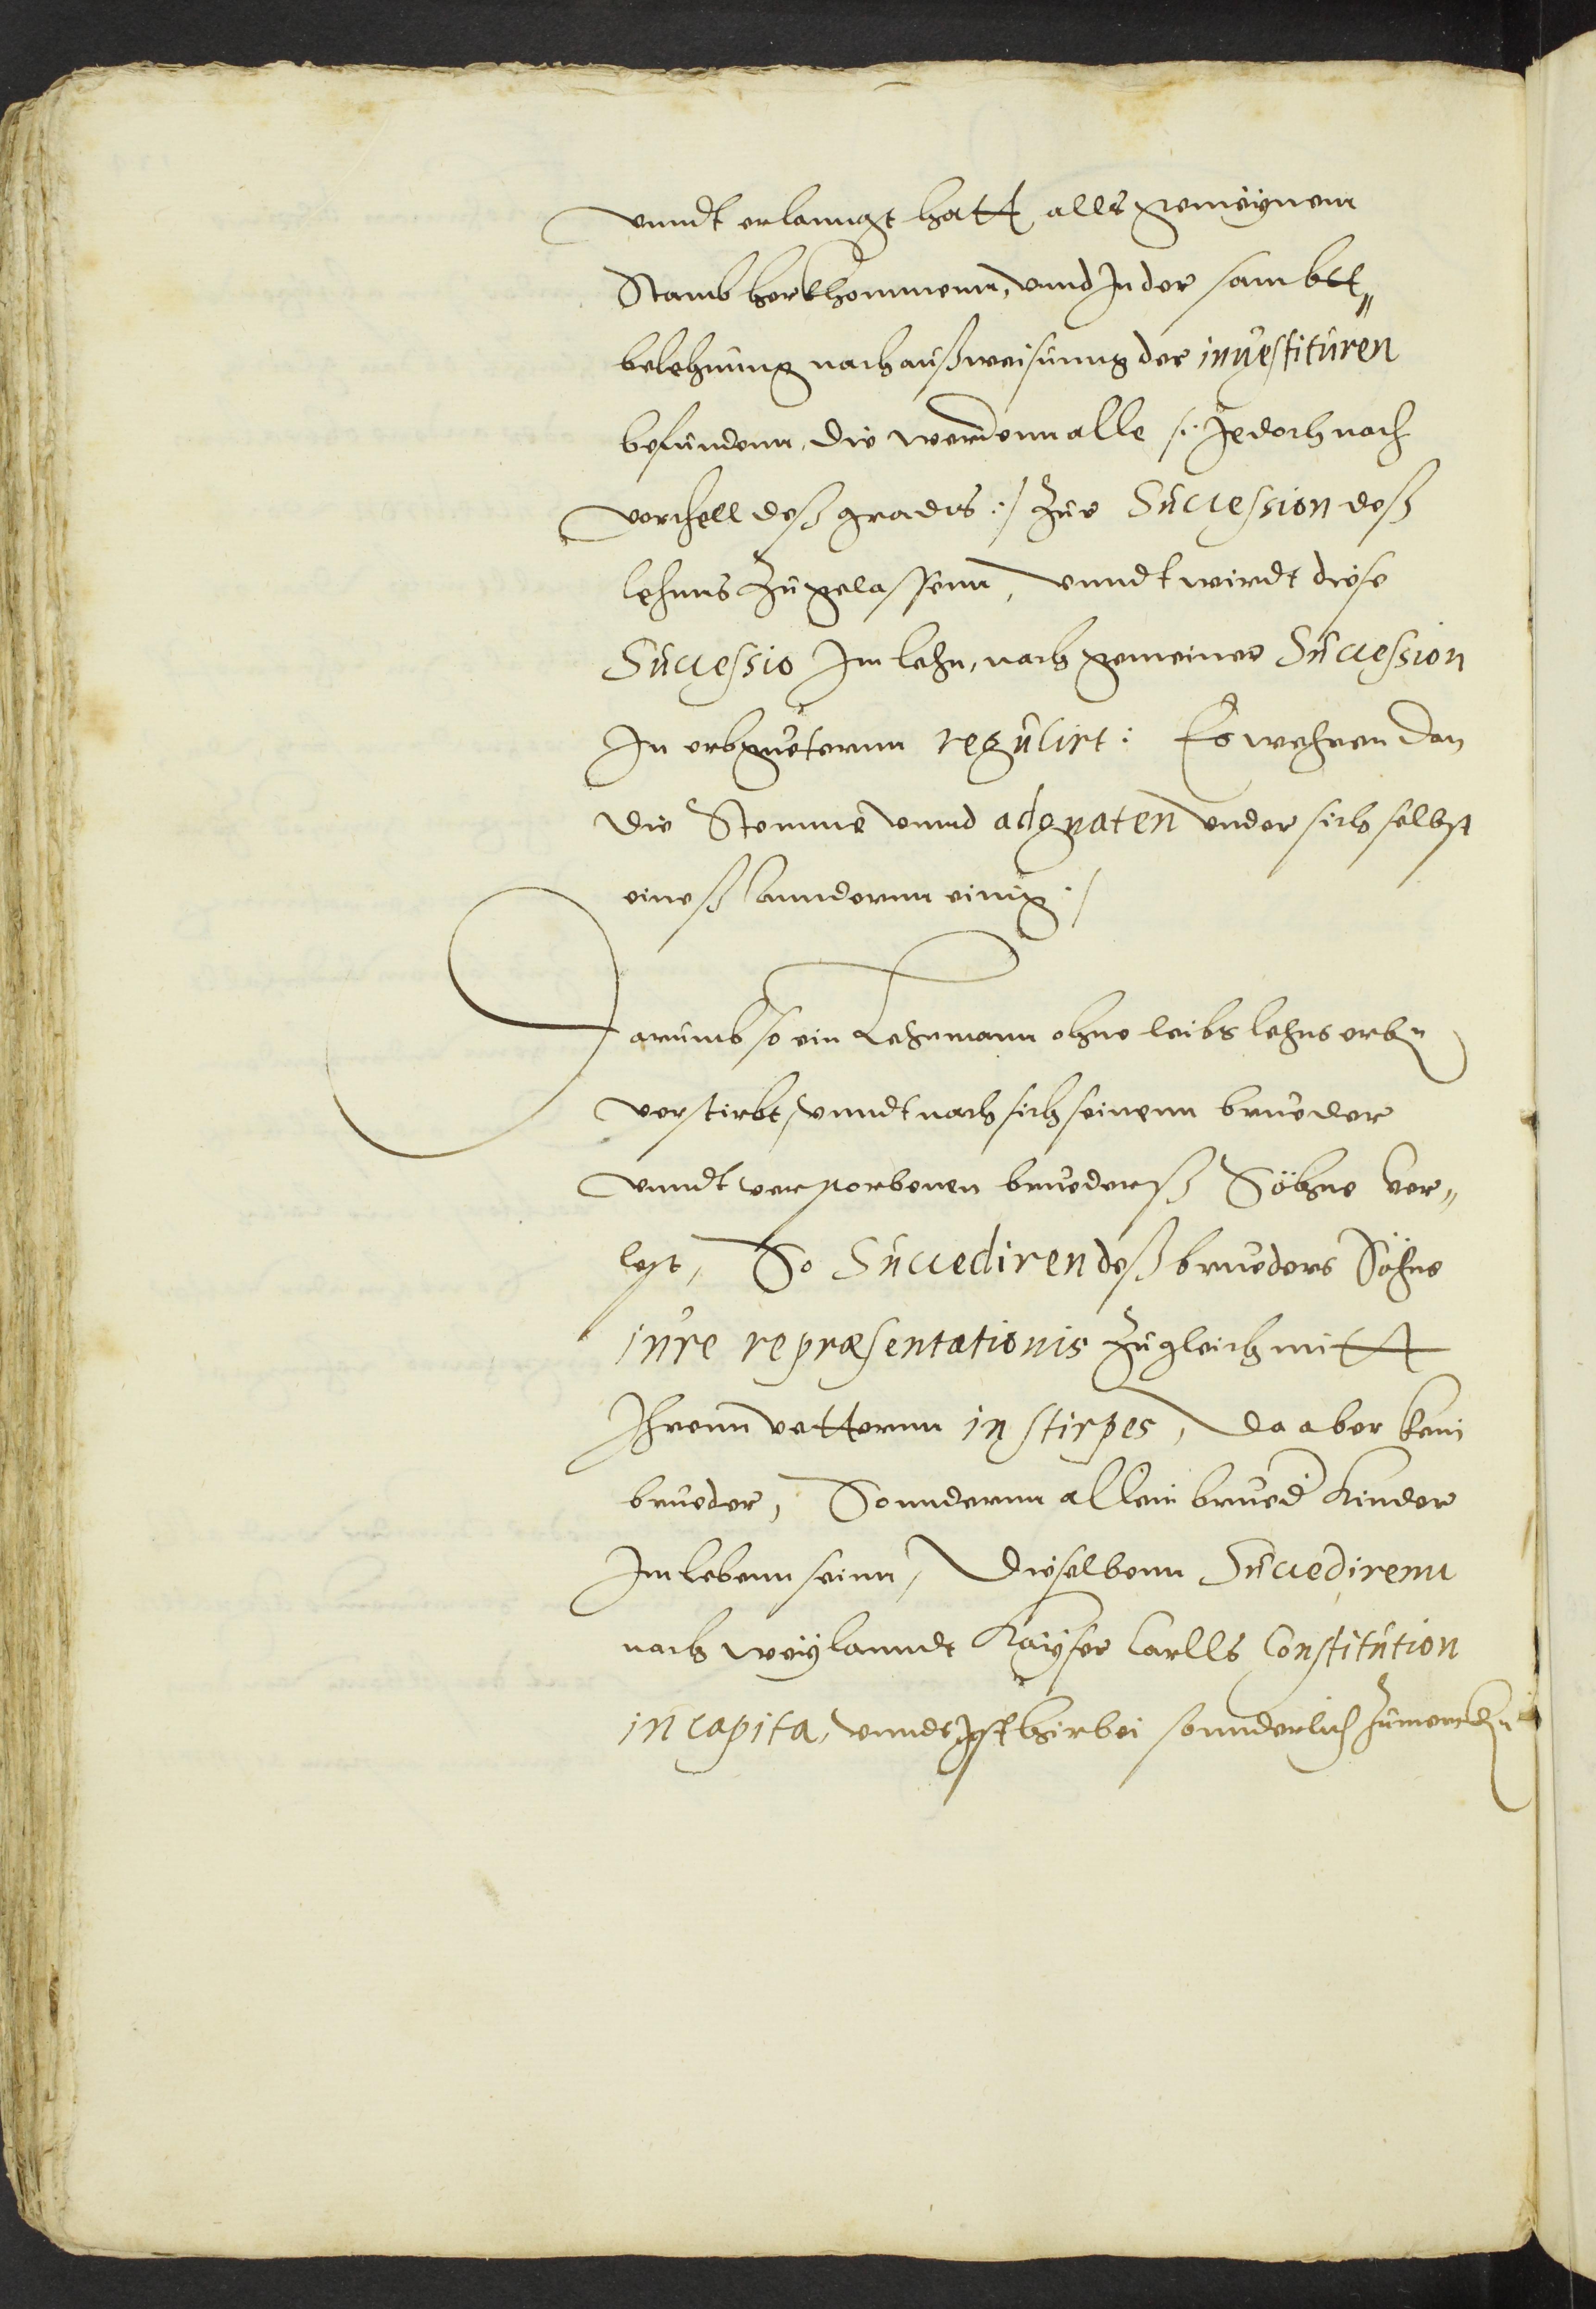 vnndt erlanngt hatt alls gemeynem
Stamb herkhommenn, vnnd In der sambtt„
belehnung nach außweisunng der inuestituren
befundenn, die werdenn alle /: Jedoch nach
vortheil deß gradus :/ Zue Succession deß
lehnns Zugelassenn, vnndt wirdt diese
Successio Im lehn, nach gemeiner Succession
In erbgueternn regulirt: Es wehren dan
die Stemme vnnd adgnaten vnder sich selbst
eineß anndernn einig /
Darumb so ein Lehnmann ohne leibs lehns erbn
verstirbt, vnndt nach sich seinenn brueder
vnndt verstorbenen brueders Söhne ver„
lest, So Succediren deß brueders Söhne
iure repræsentationis Zugleich mitt
Ihrenn vetternn in stirpes, da aber kein
brueder, Sonndernn allein brued Kinder
Im lebenn seinn, dieselbenn Succedirenn
nach weylanndt Kayser Carlls Constitution
in capita, vnndt Ist hirbei sonnderlich Zumerckn